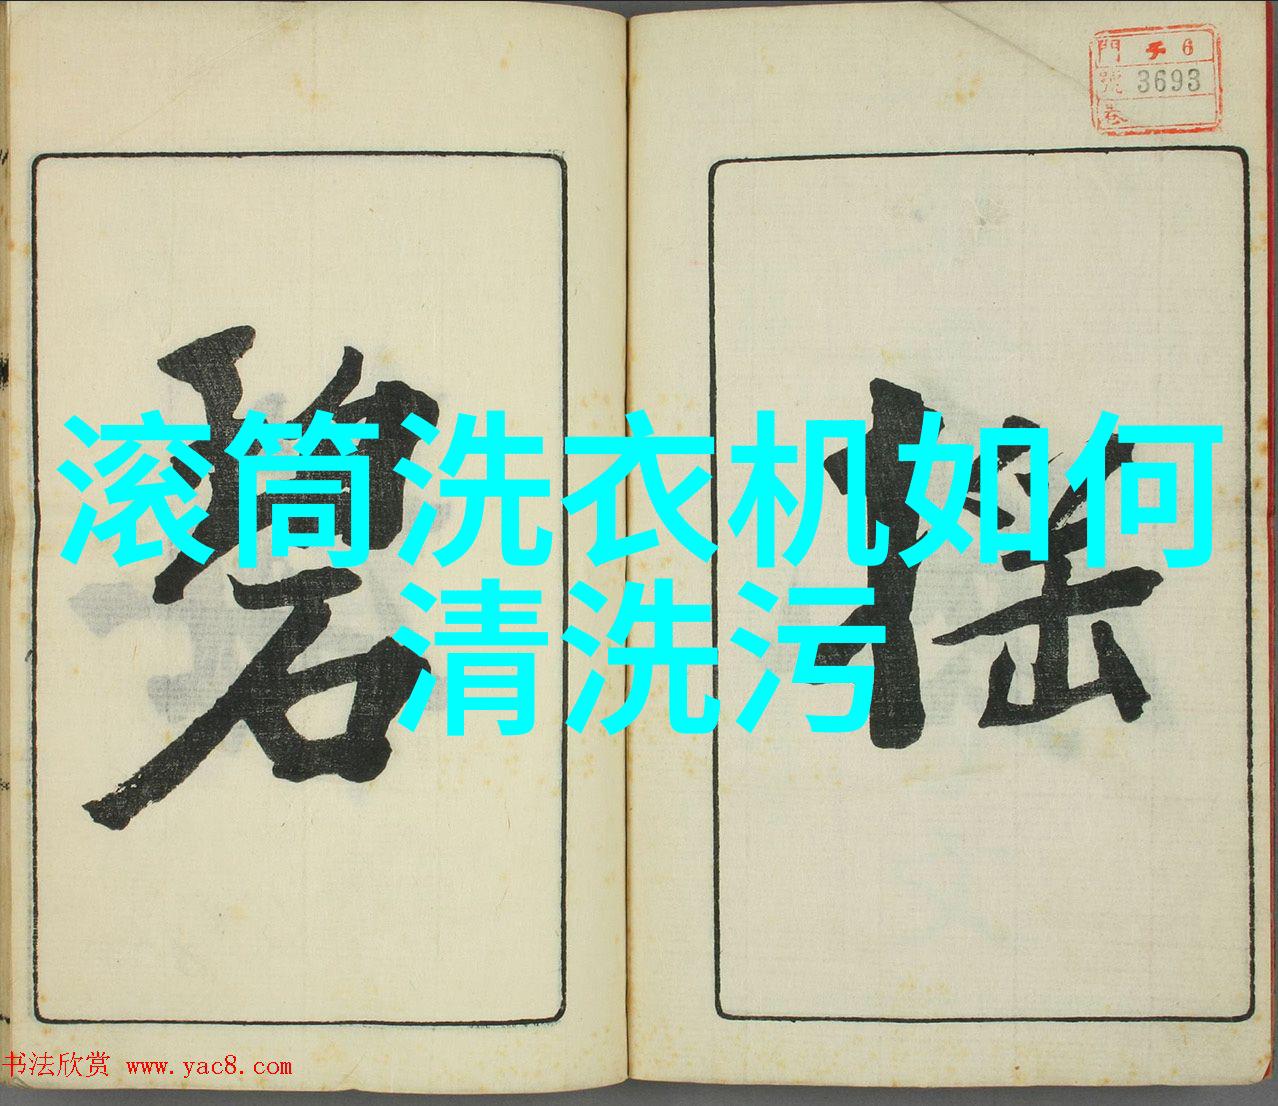 門 チ 6
號 3693
巻
搖
碧
滚筒洗衣机如何
清洗污
书法欣赏 www.yac8.com